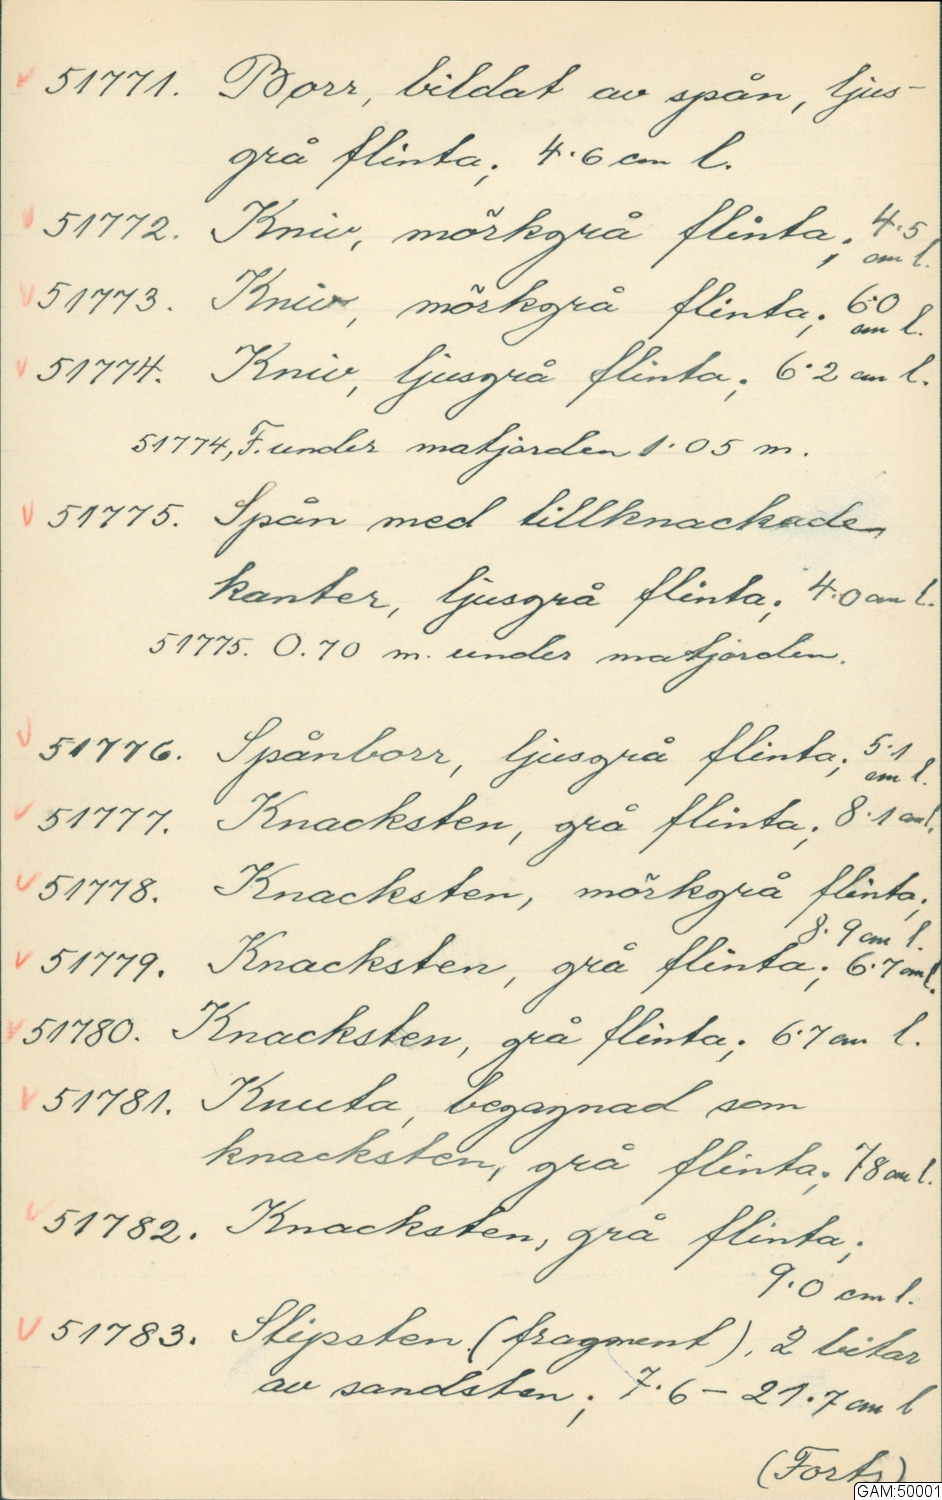 51771. Borr, bildat av spån, ljus-
grå flinta; 4.6 cm l.
51772. Kniv, mörkgrå flinta; 4.5
cm l.
51773. Kniv, mörkgrå flinta; 6.0
cm l.
51774. Kniv, ljusgrå flinta; 6.2 cm l.
51774, F. under matjorden 1.05 m.
51775. Spån med tillknackade
kanter, ljusgrå flinta; 4.0 cm l.
51775. 0.70 m. under matjorden.
51776. Spånborr, ljusgrå flinta; 5.1
cm l.
51777. Knacksten, grå flinta; 8.1 cm l.
51778. Knacksten, mörkgrå flinta;
8.9 cm l.
51779. Knacksten, grå flinta; 6.7 cm l.
51780. Knacksten, grå flinta; 6.7 cm l.
51781. Knuta, begagnad som
knacksten, grå flinta; 7.8 cm l.
51782. Knacksten, grå flinta;
9.0 cm l.
51783. Slipsten (fragment), 2 bitar
av sandsten; 7.6 – 21.7 cm l
(Forts)
GAM:50001